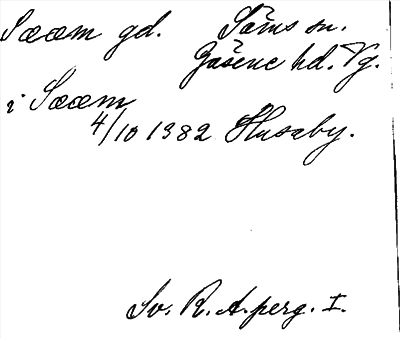 Sææm gd. Såms sn.
Gäsene hd. Vg.
i Sææm
4/10 1382 Husaby.
Sv. R. A. perg. I.